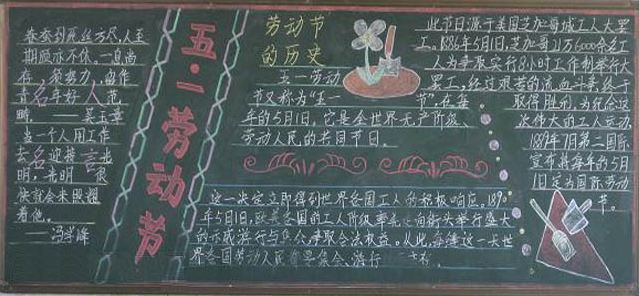 春蚕到死丝方尽,人至
期颐亦不休。一息尚
存,须努力,留作
青 名言 年好 人 范
畴。——吴玉章
当一个人用工作
去 名 迎接 言 光
明,光明
快就会来照耀
着他。
——冯学峰
五·一劳动节
劳动节
的历史
五一劳动
节又称为"五一 节",在每
年的5月1日。它是全世界无产阶级、
劳动人民的共同节日。
此节日源于美国芝加哥城工人大罢
工。1886年5月1日,芝加哥21万6000余名工
人为争取实行8小时工作制举行大
罢工,经过艰苦的流血斗争,终于
取得胜利。为纪念这
次伟大的工人运动,
1889年7月第二国际
宣布将每年的5月
1日定为国际劳动
节。
这一决定立即得到世界各国工人的积极响应。1890
年5月1日,欧美各国的工人阶级率先走向街头举行盛大
的示威游行与集会,争取合法权益。从此,每逢这一天世
界各国劳动人民都要集会、游行